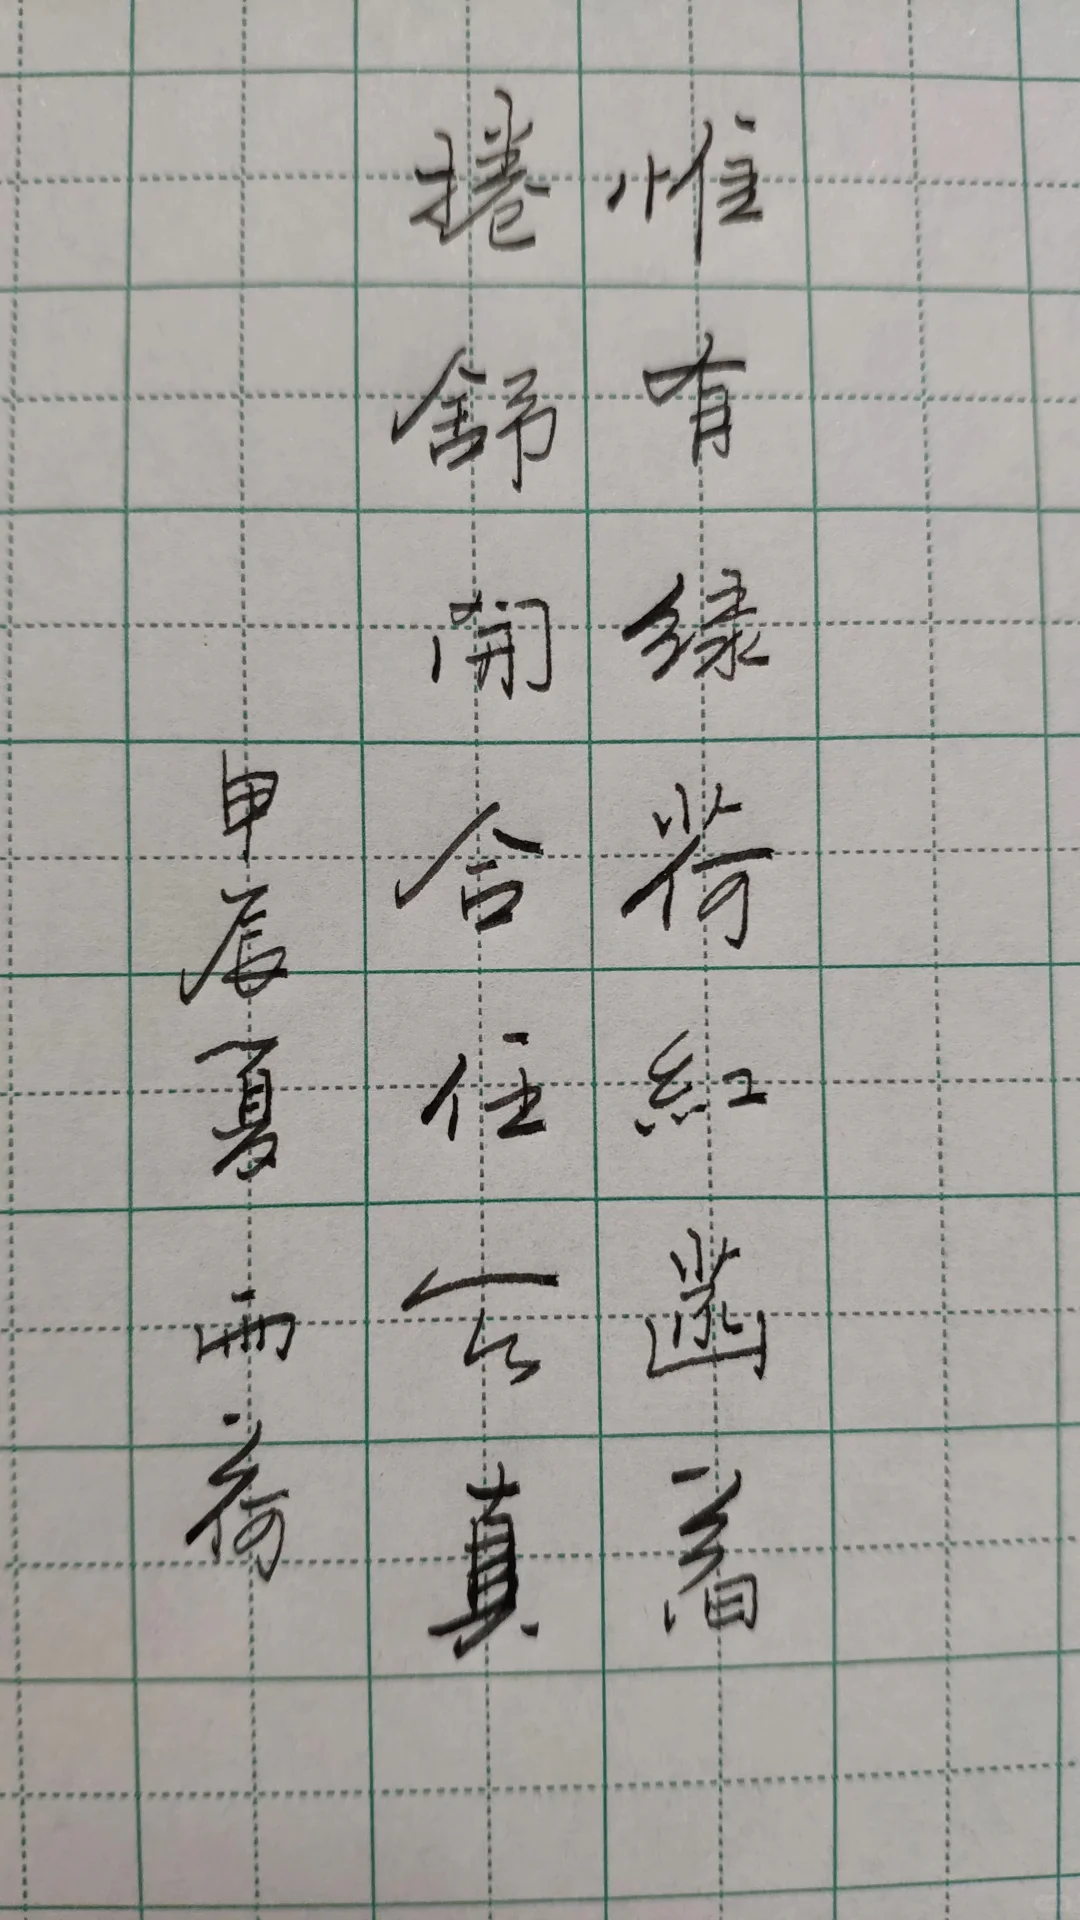 惟有緑荷紅菡萏
捲舒開合任天真
甲辰夏雨荷